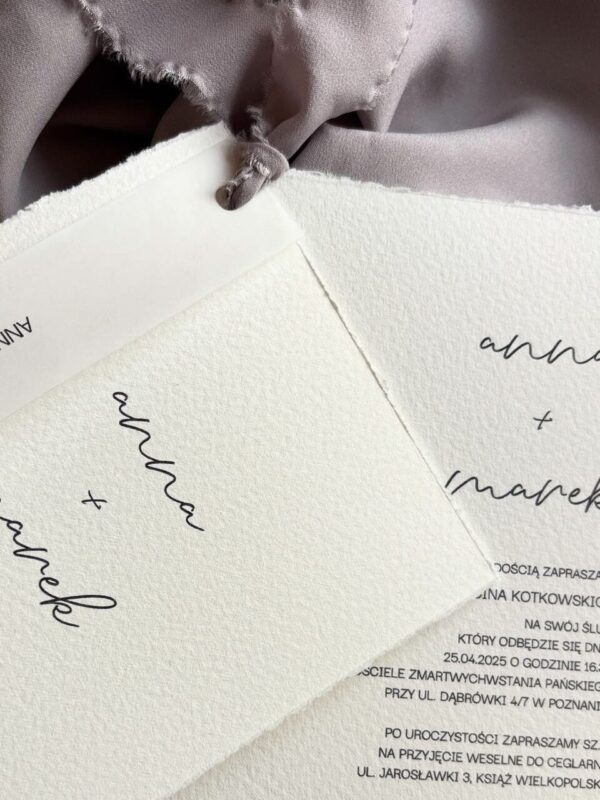 ANN
anna
+
marek
anna
+
marek
DOŚCIĄ ZAPRASZA
INA KOTKOWSKIC
NA SWÓJ ŚLU
KTÓRY ODBĘDZIE SIĘ DN
25.04.2025 O GODZINIE 16.3
OŚCIELE ZMARTWYCHWSTANIA PAŃSKIEG
PRZY UL. DĄBRÓWKI 4/7 W POZNANI
PO UROCZYSTOŚCI ZAPRASZAMY SZ.
NA PRZYJĘCIE WESELNE DO CEGLARN
UL. JAROSŁAWKI 3, KSIĄŻ WIELKOPOLSK